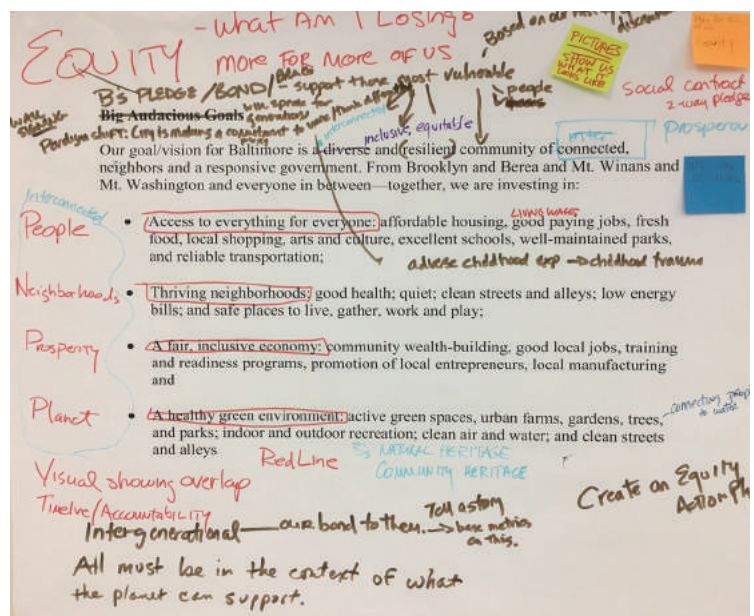 - What Am I Losing?
EQUITY
more for more of us
Based on our
PICTURES
SHOW US
WHAT IT
LOOKS LIKE
B's PLEDGE/BOND/
- support those most vulnerable
people
Social contract
2-way pledge
Big Audacious Goals
generations
Paradigm shift: City is making a commitment to
interconnected
inclusive, equitable
prosperou
Our goal/vision for Baltimore is a diverse and (resilient) community of connected,
neighbors and a responsive government. From Brooklyn and Berea and Mt. Winans and
Mt. Washington and everyone in between—together, we are investing in:
Interconnected
People
LIVING WAGES
• Access to everything for everyone: affordable housing, good paying jobs, fresh
food, local shopping, arts and culture, excellent schools, well-maintained parks,
and reliable transportation;
adverse childhood exp → childhood trauma
Neighborhoods
• Thriving neighborhoods: good health; quiet; clean streets and alleys; low energy
bills; and safe places to live, gather, work and play;
Prosperity
• A fair, inclusive economy: community wealth-building, good local jobs, training
and readiness programs, promotion of local entrepreneurs, local manufacturing
and
Planet
• A healthy green environment: active green spaces, urban farms, gardens, trees,
and parks; indoor and outdoor recreation; clean air and water; and clean streets
and alleys
- connecting people
to water
Red Line
B's NATURAL HERITAGE
COMMUNITY HERITAGE
Visual showing overlap
Timeline/Accountability
Create an Equity
Action Pl
Intergenerational — our bond to them.
Tell a story
→ base metrics
on this.
All must be in the context of what
the planet can support.